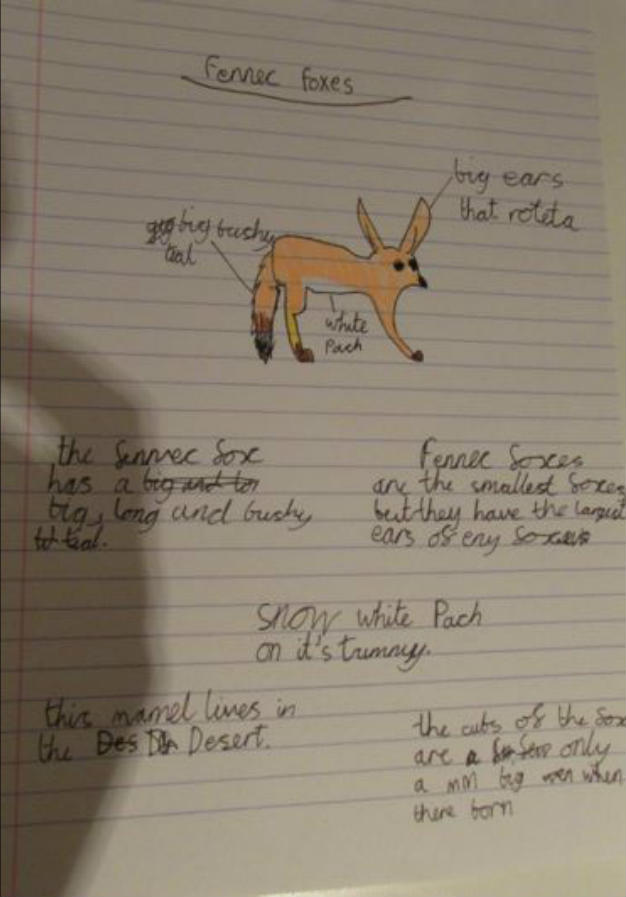 Fennec foxes
big ears
that roteta
big bushy
tial
white
Pach
the fennec fox
has a big and lon
big, long and bushy
tial.
Fennec foxes
are the smallest foxes
but they have the largest
ears of eny foxes
snow white Pach
on it's tummy.
this mamel lives in
the Des Desert.
the cubs of the fox
are a only
a mm big when
there born